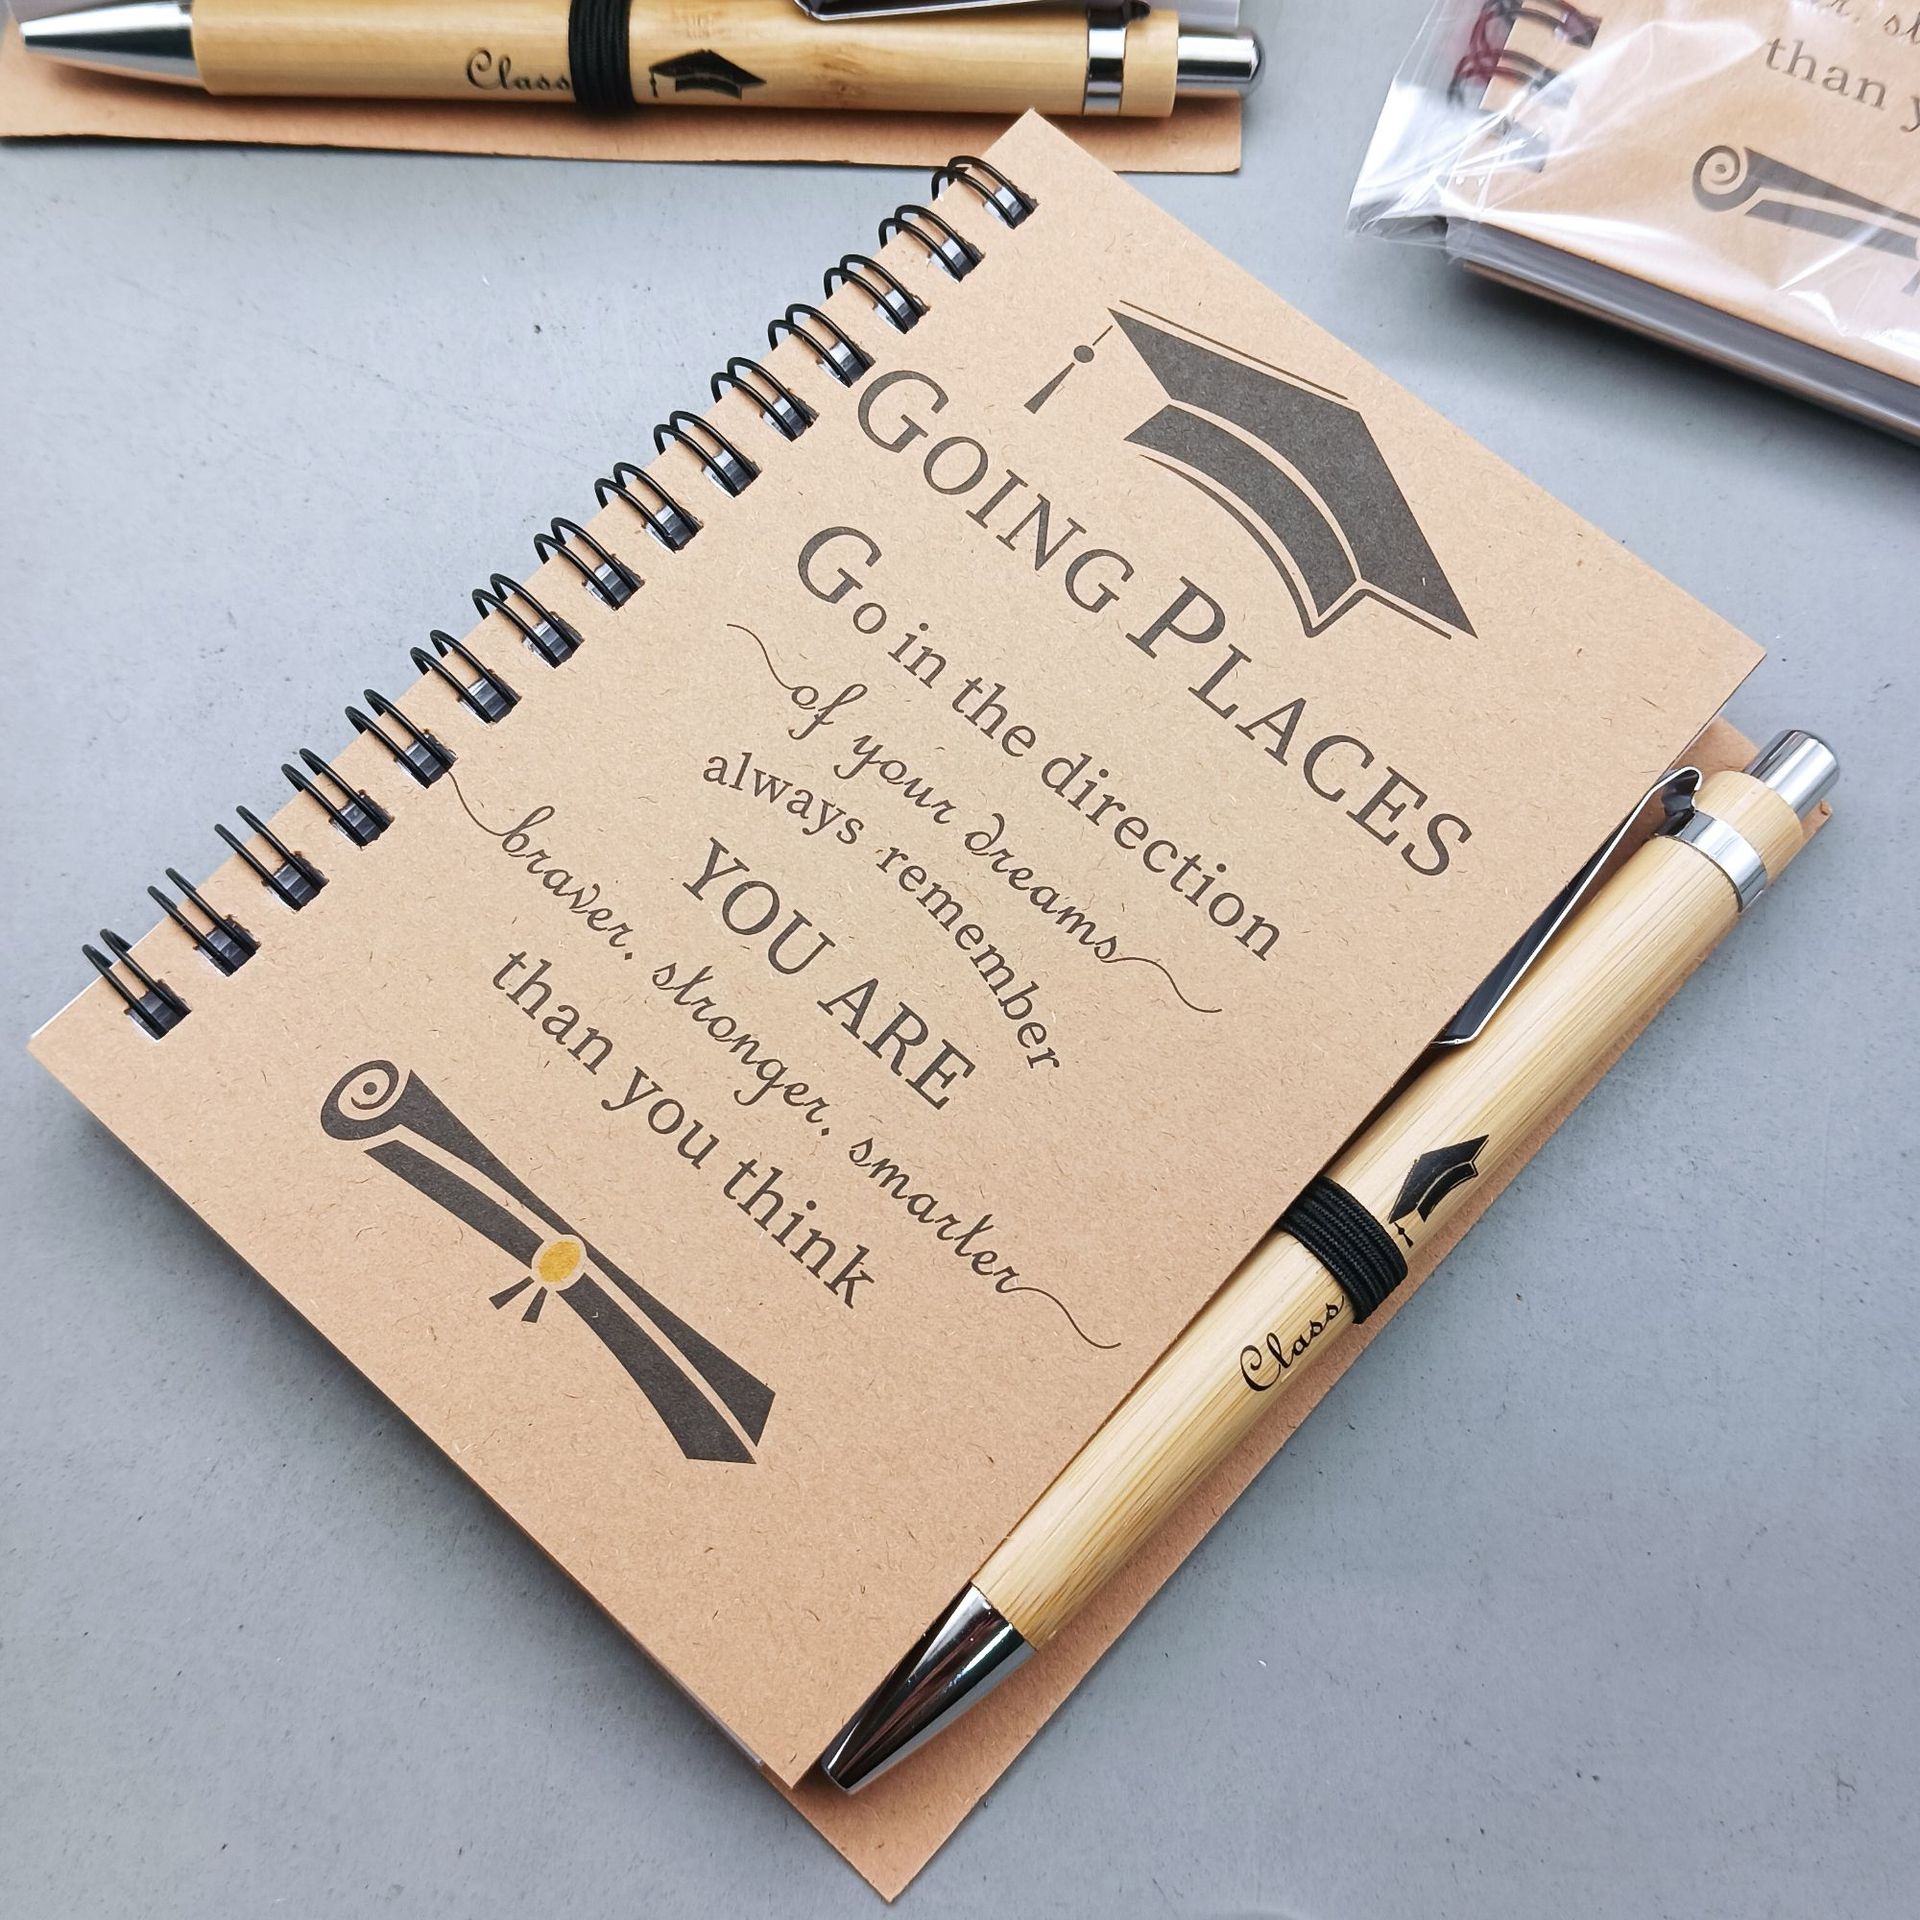 Class
than
GOING PLACES
Go in the direction
of your dreams
always remember
YOU ARE
braver. stronger. smarter
than you think
Class